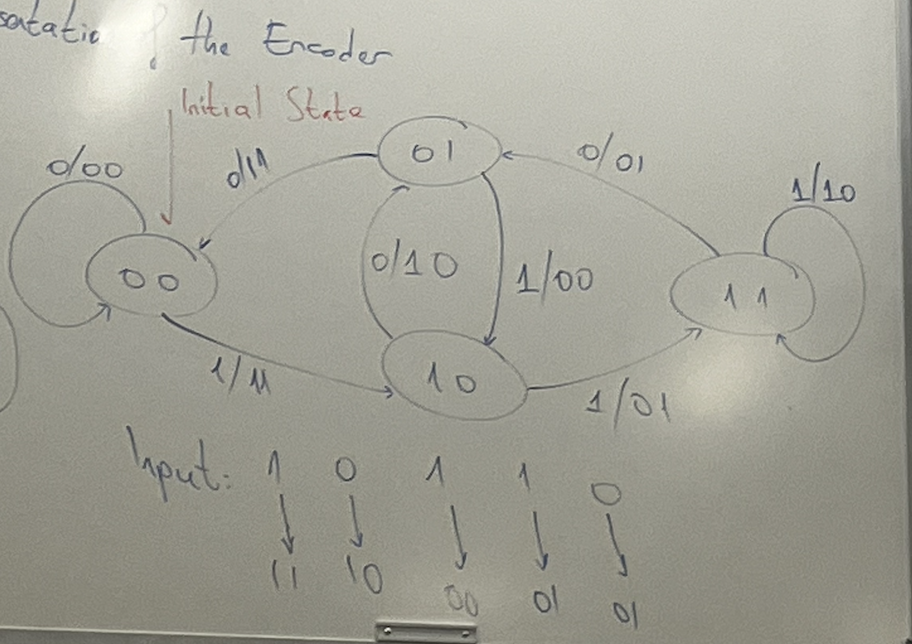 the Encoder
Initial State
0/00
0/11
01
0/01
1/10
00
0/10
1/00
11
1/11
10
1/01
Input: 1 0 1 1 0
11 10 00 01 01